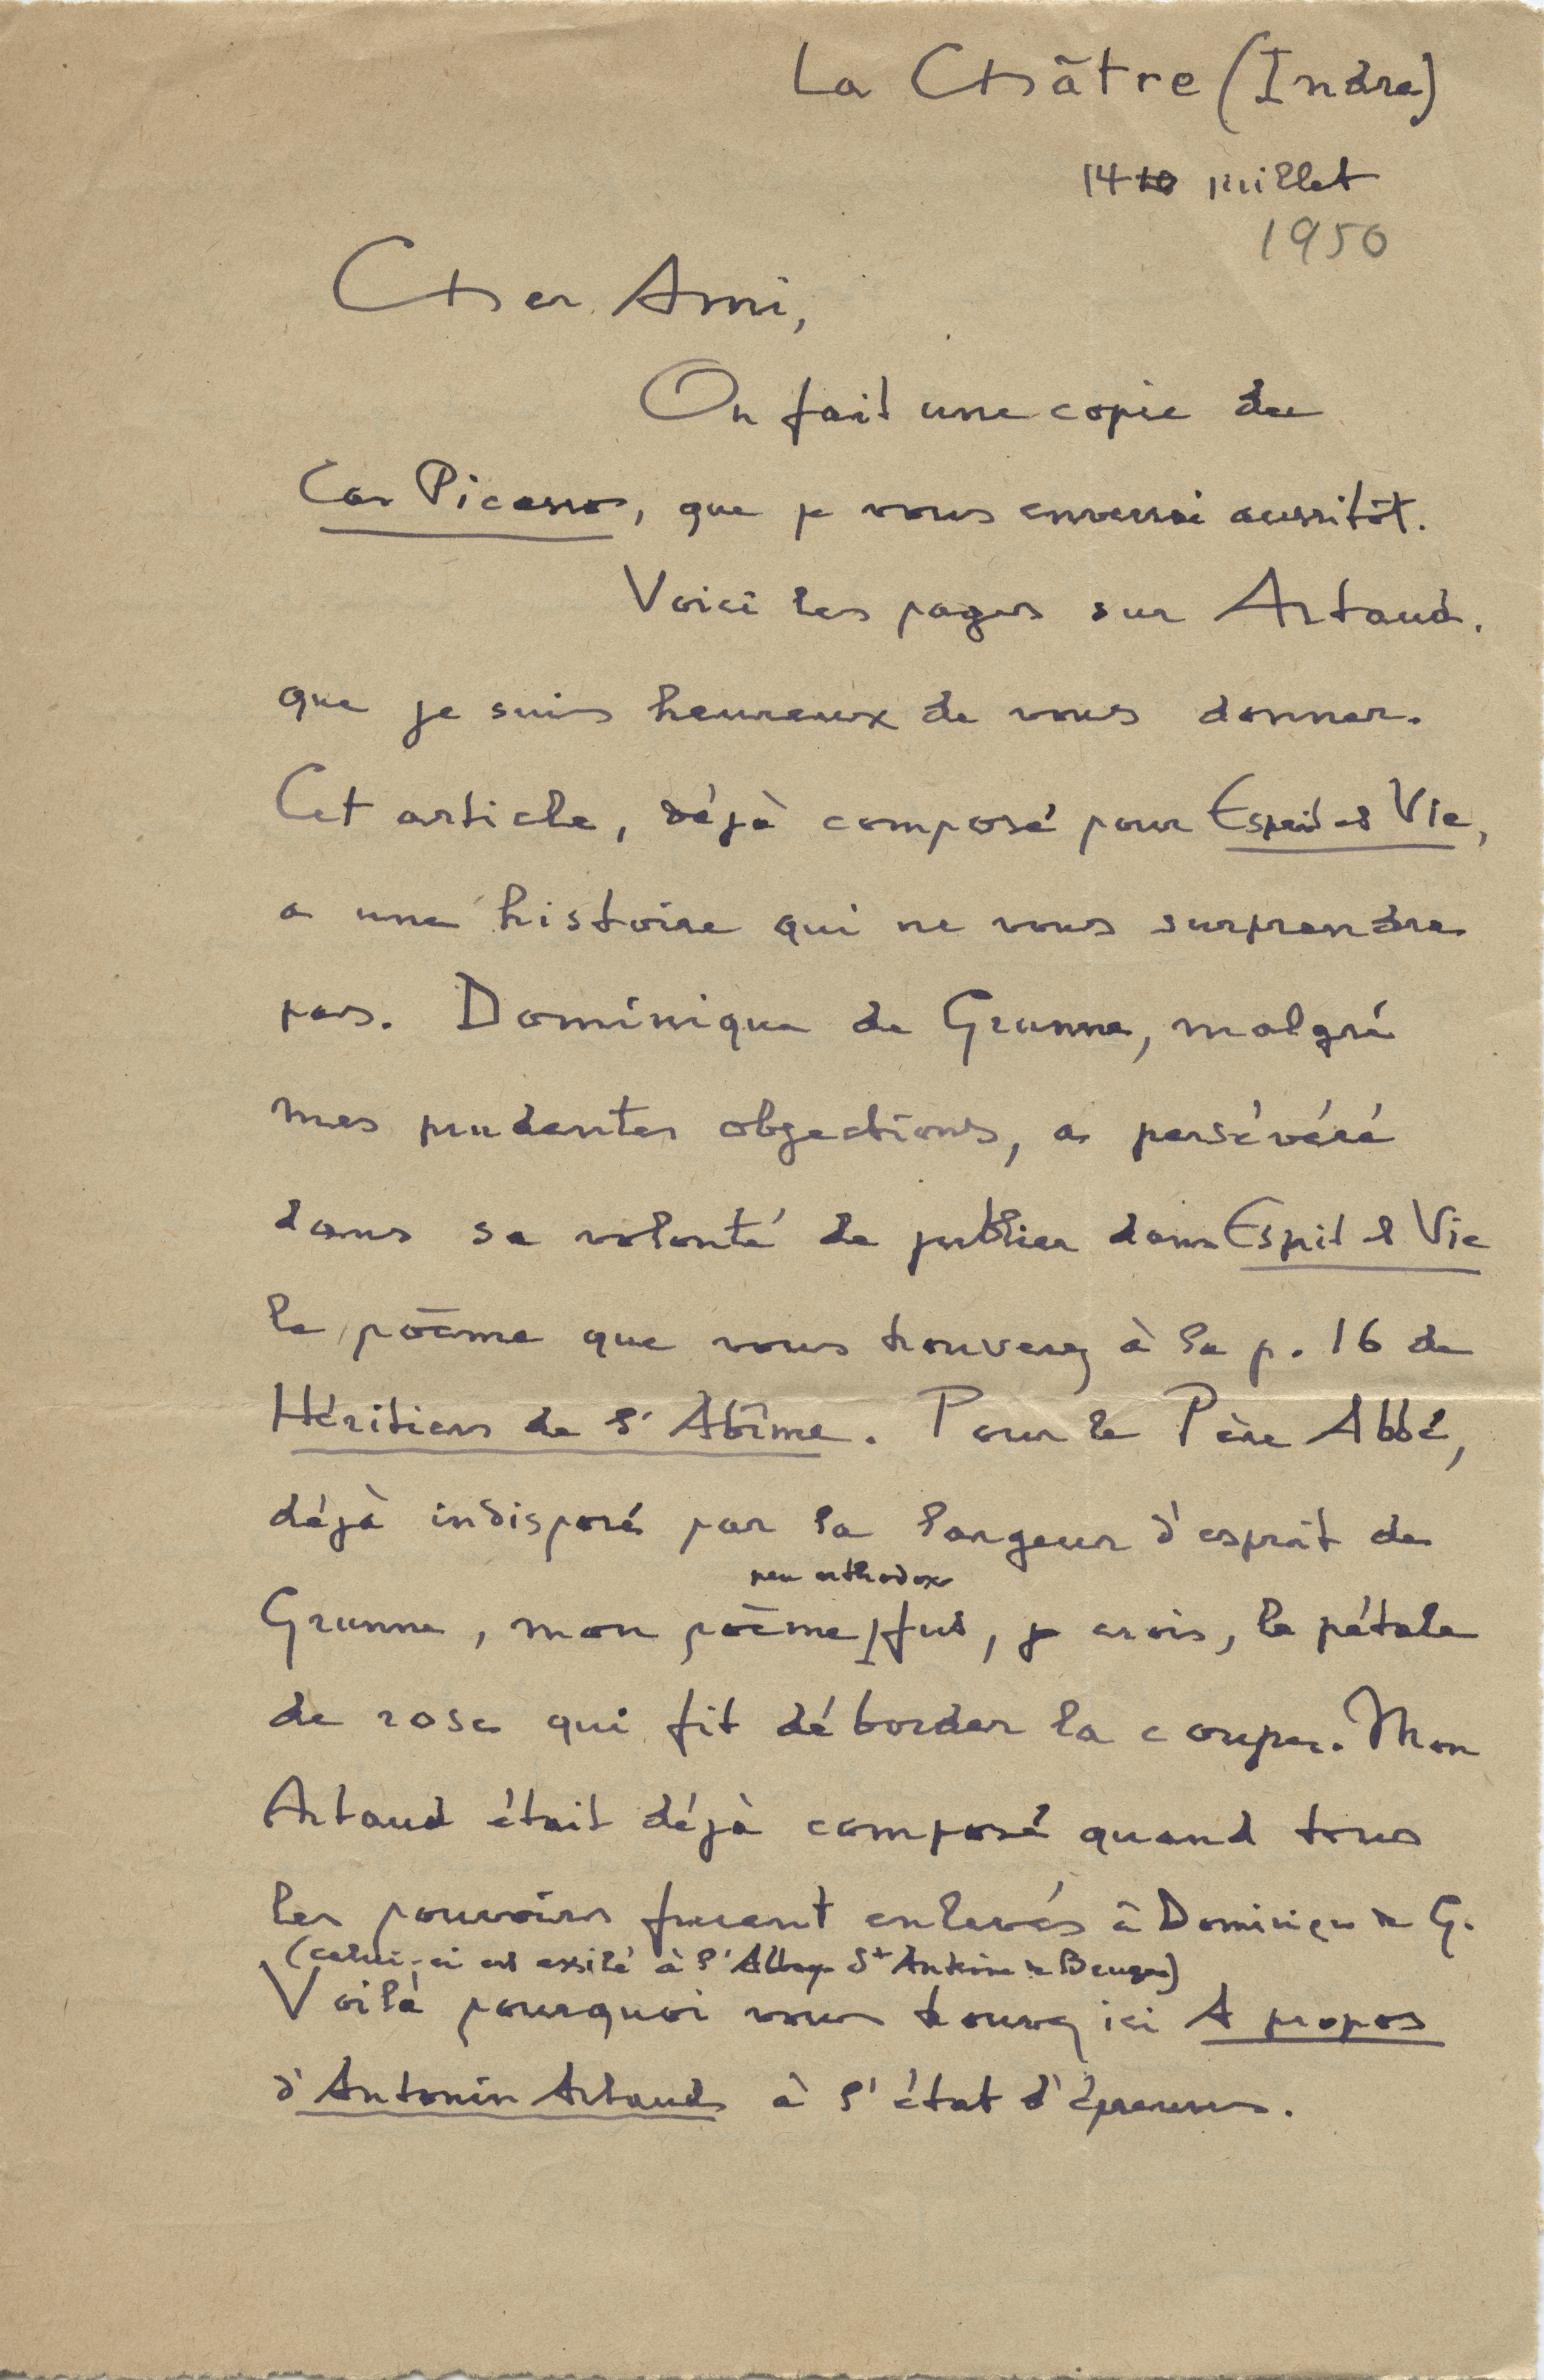 La Châtre (Indre)
14 juillet
1950
Cher Ami,
On fait une copie du
Cas Picasso, que je vous enverrai aussitôt.
Voici les pages sur Artaud.
que je suis heureux de vous donner.
Cet article, déjà composé pour Esprit et Vie,
a une histoire qui ne vous surprendra
pas. Dominique de Grunne, malgré
mes prudentes objections, a persévéré
dans sa volonté de publier dans Esprit et Vie
le poème que vous trouverez à la p. 16 de
Héritiers de l'Abîme. Pour le Père Abbé,
déjà indisposé par la largeur d'esprit de
peu orthodoxe
Grunne, mon poème fut, je crois, le pétale
de rose qui fit déborder la coupe. Mon
Artaud était déjà composé quand tous
les pouvoirs furent enlevés à Dominique de G.
(celui-ci est exilé à l'Abbaye St Antoine de)
Voilà pourquoi vous trouvez ici A propos
d'Antonin Artaud à l'état d'épreuves.